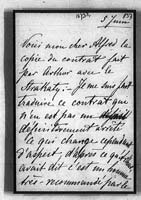 5 Juin
Vous mon cher Alfred la
copie du contrat fait
par Arthur avec le
Strakaty. Je me suis fait
traduire ce contrat qui
n'en est pas un
définitivement arrêté
ce qui change
d'aspect, d'après ce qu'
avait dit c'est un
très recommandé par le